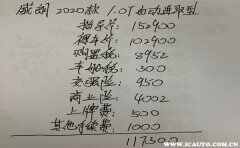 威朗 2020款 1.0T自动进取型
指导价: 152900
裸车价: 102900
购置税: 8952
车船税: 300
交强险: 950
商业险: 4002
上牌费: 500
其他手续费: 1000
117300
www.jcauto.com.cn